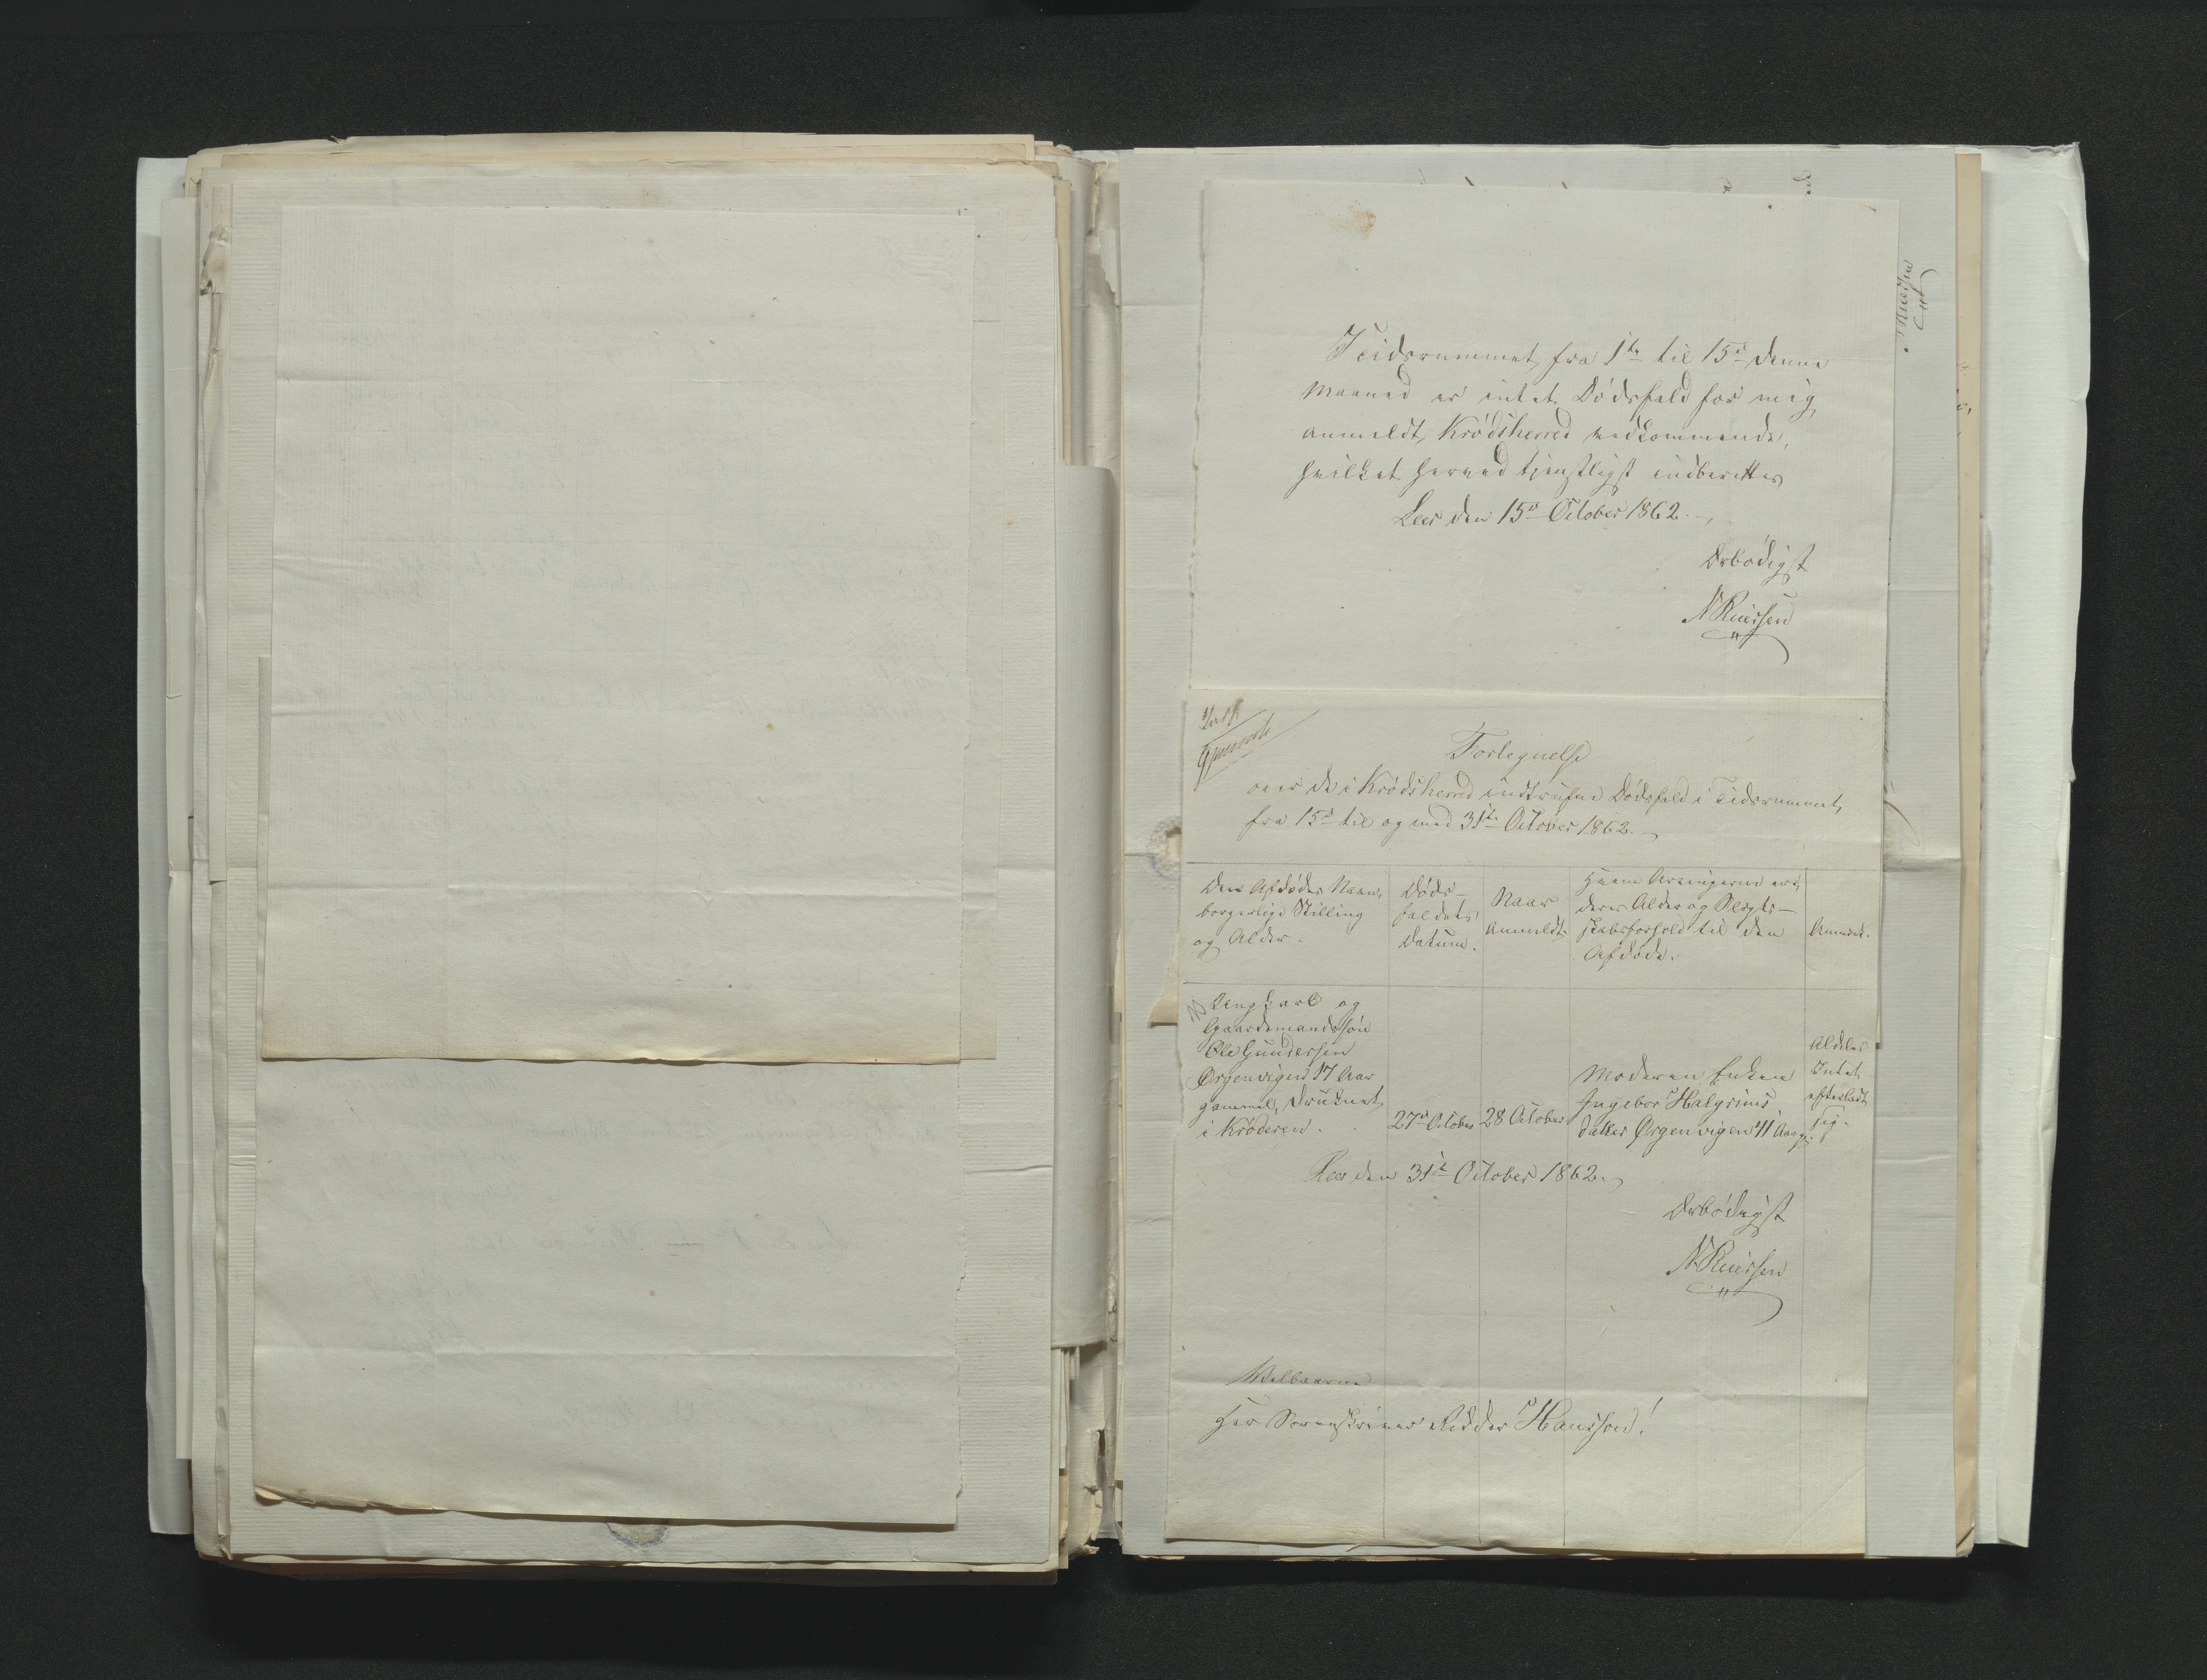 I Tidsrummet fra 1ste til 15de denne
Maaned er intet Dødsfald for mig
anmeldt, Krødsherred vedkommende,
hvilket herved tjenstligst indberettes
Leer den 15de October 1862.
Ærbødigst
N Ruersen
Fortegnelse
over de i Krødsherred indtrufne Dødsfald i Tidsrummet
fra 15de til og med 31te October 1862.
Den Afdødes Navn,
borgerlige Stilling
og Alder.
Døds-
faldets
Datum.
Naar
anmeldt.
Hvem Arvingerne ere,
deres Alder og Slægt-
skabsforhold til den
Afdøde.
Anmærk.
Ungkarl og
Gaardmandssøn
Ole Gundersen
Ørgenvigen 17 Aar
gammel, druknet
i Krøderen.
27de October
28 October
Moderen Enken
Ingebor Halgrims
datter Ørgenvigen 41 Aar g.
Aldeles
Intet
efterladt
sig.
Leer den 31te October 1862.
Ærbødigst
N Ruersen
Velbaarne
Herr Sorenskriver Ridder Hansson!